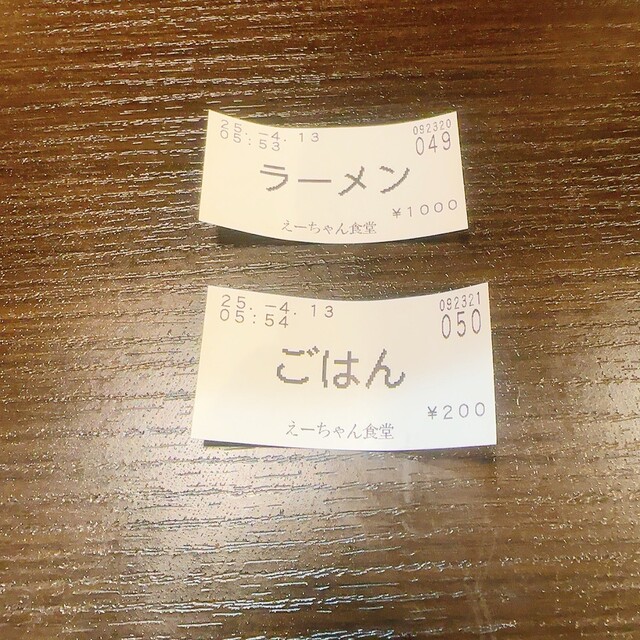 25.-4.13 092320
05:53 049
ラーメン
¥1000
えーちゃん食堂
25.-4.13 092321
05:54 050
ごはん
¥200
えーちゃん食堂